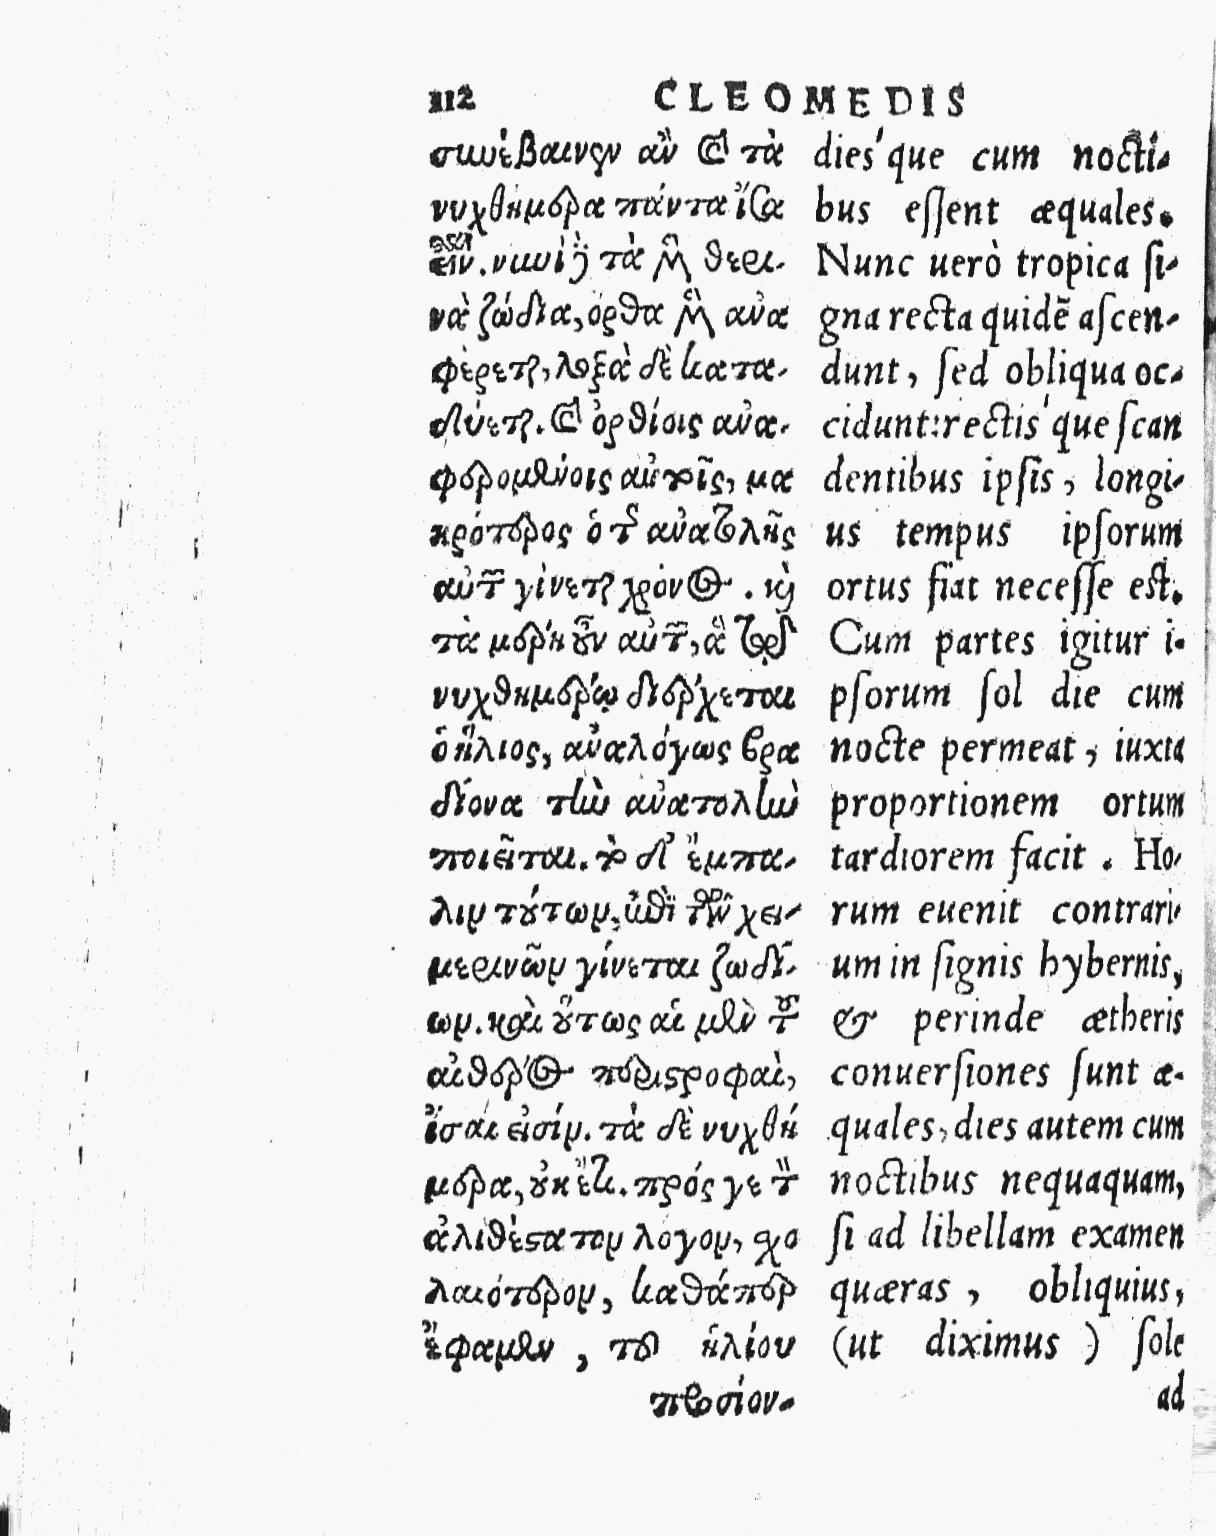 112 CLEOMEDIS
συνέβαινεν ἂν καὶ τὰ
νυχθήμερα πάντα ἴσα
εἶν. νυνὶ δὲ τὰ μὲν θερι-
νὰ ζώδια, ὀρθὰ μὲν ἀνα
φέρεται, λοξὰ δὲ κατα-
δύεται. καὶ ὀρθίοις ἀνα-
φερομένοις αὐτοῖς, μα
κρότερος ὁ τῆς ἀνατολῆς
αὐτῶν γίνεται χρόνος. καὶ
τὰ μέρη οὖν αὐτῶν, ἃ
νυχθημέρῳ διέρχεται
ὁ ἥλιος, ἀναλόγως βρα
δίονα τὴν ἀνατολὴν
ποιεῖται. τὸ δ' ἔμπα-
λιν τούτων, ἐπὶ τῶν χει-
μερινῶν γίνεται ζωδί-
ων. καὶ οὕτως αἱ μὲν τοῦ
αἰθέρος περιστροφαὶ,
ἴσαι εἰσίν. τὰ δὲ νυχθή
μερα, οὐκ ἔτι. πρός γε τὸν
ἀληθέστατον λόγον, σχο
λαιότερον, καθάπερ
ἔφαμεν, τοῦ ἡλίου
προσίον-
dies'que cum nocti-
bus essent æquales.
Nunc uerò tropica si-
gna recta quidẽ ascen-
dunt, sed obliqua oc-
cidunt: rectis'que scan
dentibus ipsis, longi-
us tempus ipsorum
ortus fiat necesse est.
Cum partes igitur i-
psorum sol die cum
nocte permeat, iuxta
proportionem ortum
tardiorem facit. Ho-
rum euenit contrari-
um in signis hybernis,
& perinde ætheris
conuersiones sunt æ-
quales, dies autem cum
noctibus nequaquam,
si ad libellam examen
quæras, obliquius,
(ut diximus) sole
ad